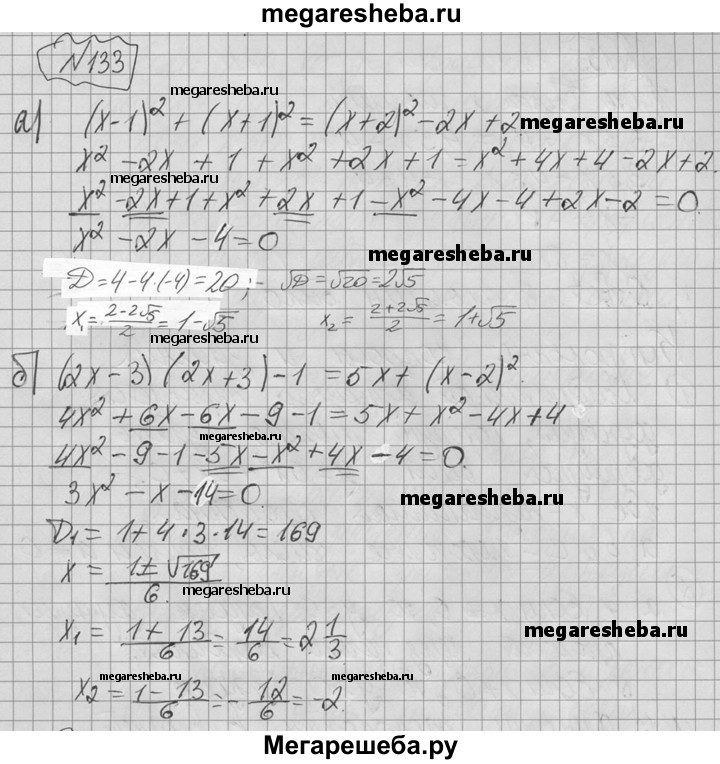 megaresheba.ru
N133
megaresheba.ru
а) (x-1)² + (x+1)² = (x+2)² - 2x + 2
megaresheba.ru
x² - 2x + 1 + x² + 2x + 1 = x² + 4x + 4 - 2x + 2.
megaresheba.ru
x² - 2x + 1 + x² + 2x + 1 - x² - 4x - 4 + 2x - 2 = 0.
x² - 2x - 4 = 0
megaresheba.ru
D = 4 - 4·(-4) = 20; - √D = √20 = 2√5
x₁ = (2-2√5)/2 = 1-√5 x₂ = (2+2√5)/2 = 1+√5
megaresheba.ru
б) (2x-3)(2x+3) - 1 = 5x + (x-2)².
4x² + 6x - 6x - 9 - 1 = 5x + x² - 4x + 4
megaresheba.ru
4x² - 9 - 1 - 5x - x² + 4x - 4 = 0.
3x² - x - 14 = 0.
megaresheba.ru
D₁ = 1 + 4·3·14 = 169
x = (1±√169)/6.
megaresheba.ru
x₁ = (1+13)/6 = 14/6 = 2 1/3
megaresheba.ru
megaresheba.ru
x₂ = (1-13)/6 = -12/6 = -2.
megaresheba.ru
Мегарешеба.ру